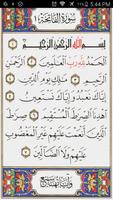 5:44 PM
سُورَةُ الْفَاتِحَةِ
بِسْمِ اللَّهِ الرَّحْمَٰنِ الرَّحِيمِ
الْحَمْدُ لِلَّهِ رَبِّ الْعَالَمِينَ الرَّحْمَٰنِ
الرَّحِيمِ مَالِكِ يَوْمِ الدِّينِ
إِيَّاكَ نَعْبُدُ وَإِيَّاكَ نَسْتَعِينُ
اهْدِنَا الصِّرَاطَ الْمُسْتَقِيمَ صِرَاطَ
الَّذِينَ أَنْعَمْتَ عَلَيْهِمْ غَيْرِ الْمَغْضُوبِ
عَلَيْهِمْ وَلَا الضَّالِّينَ